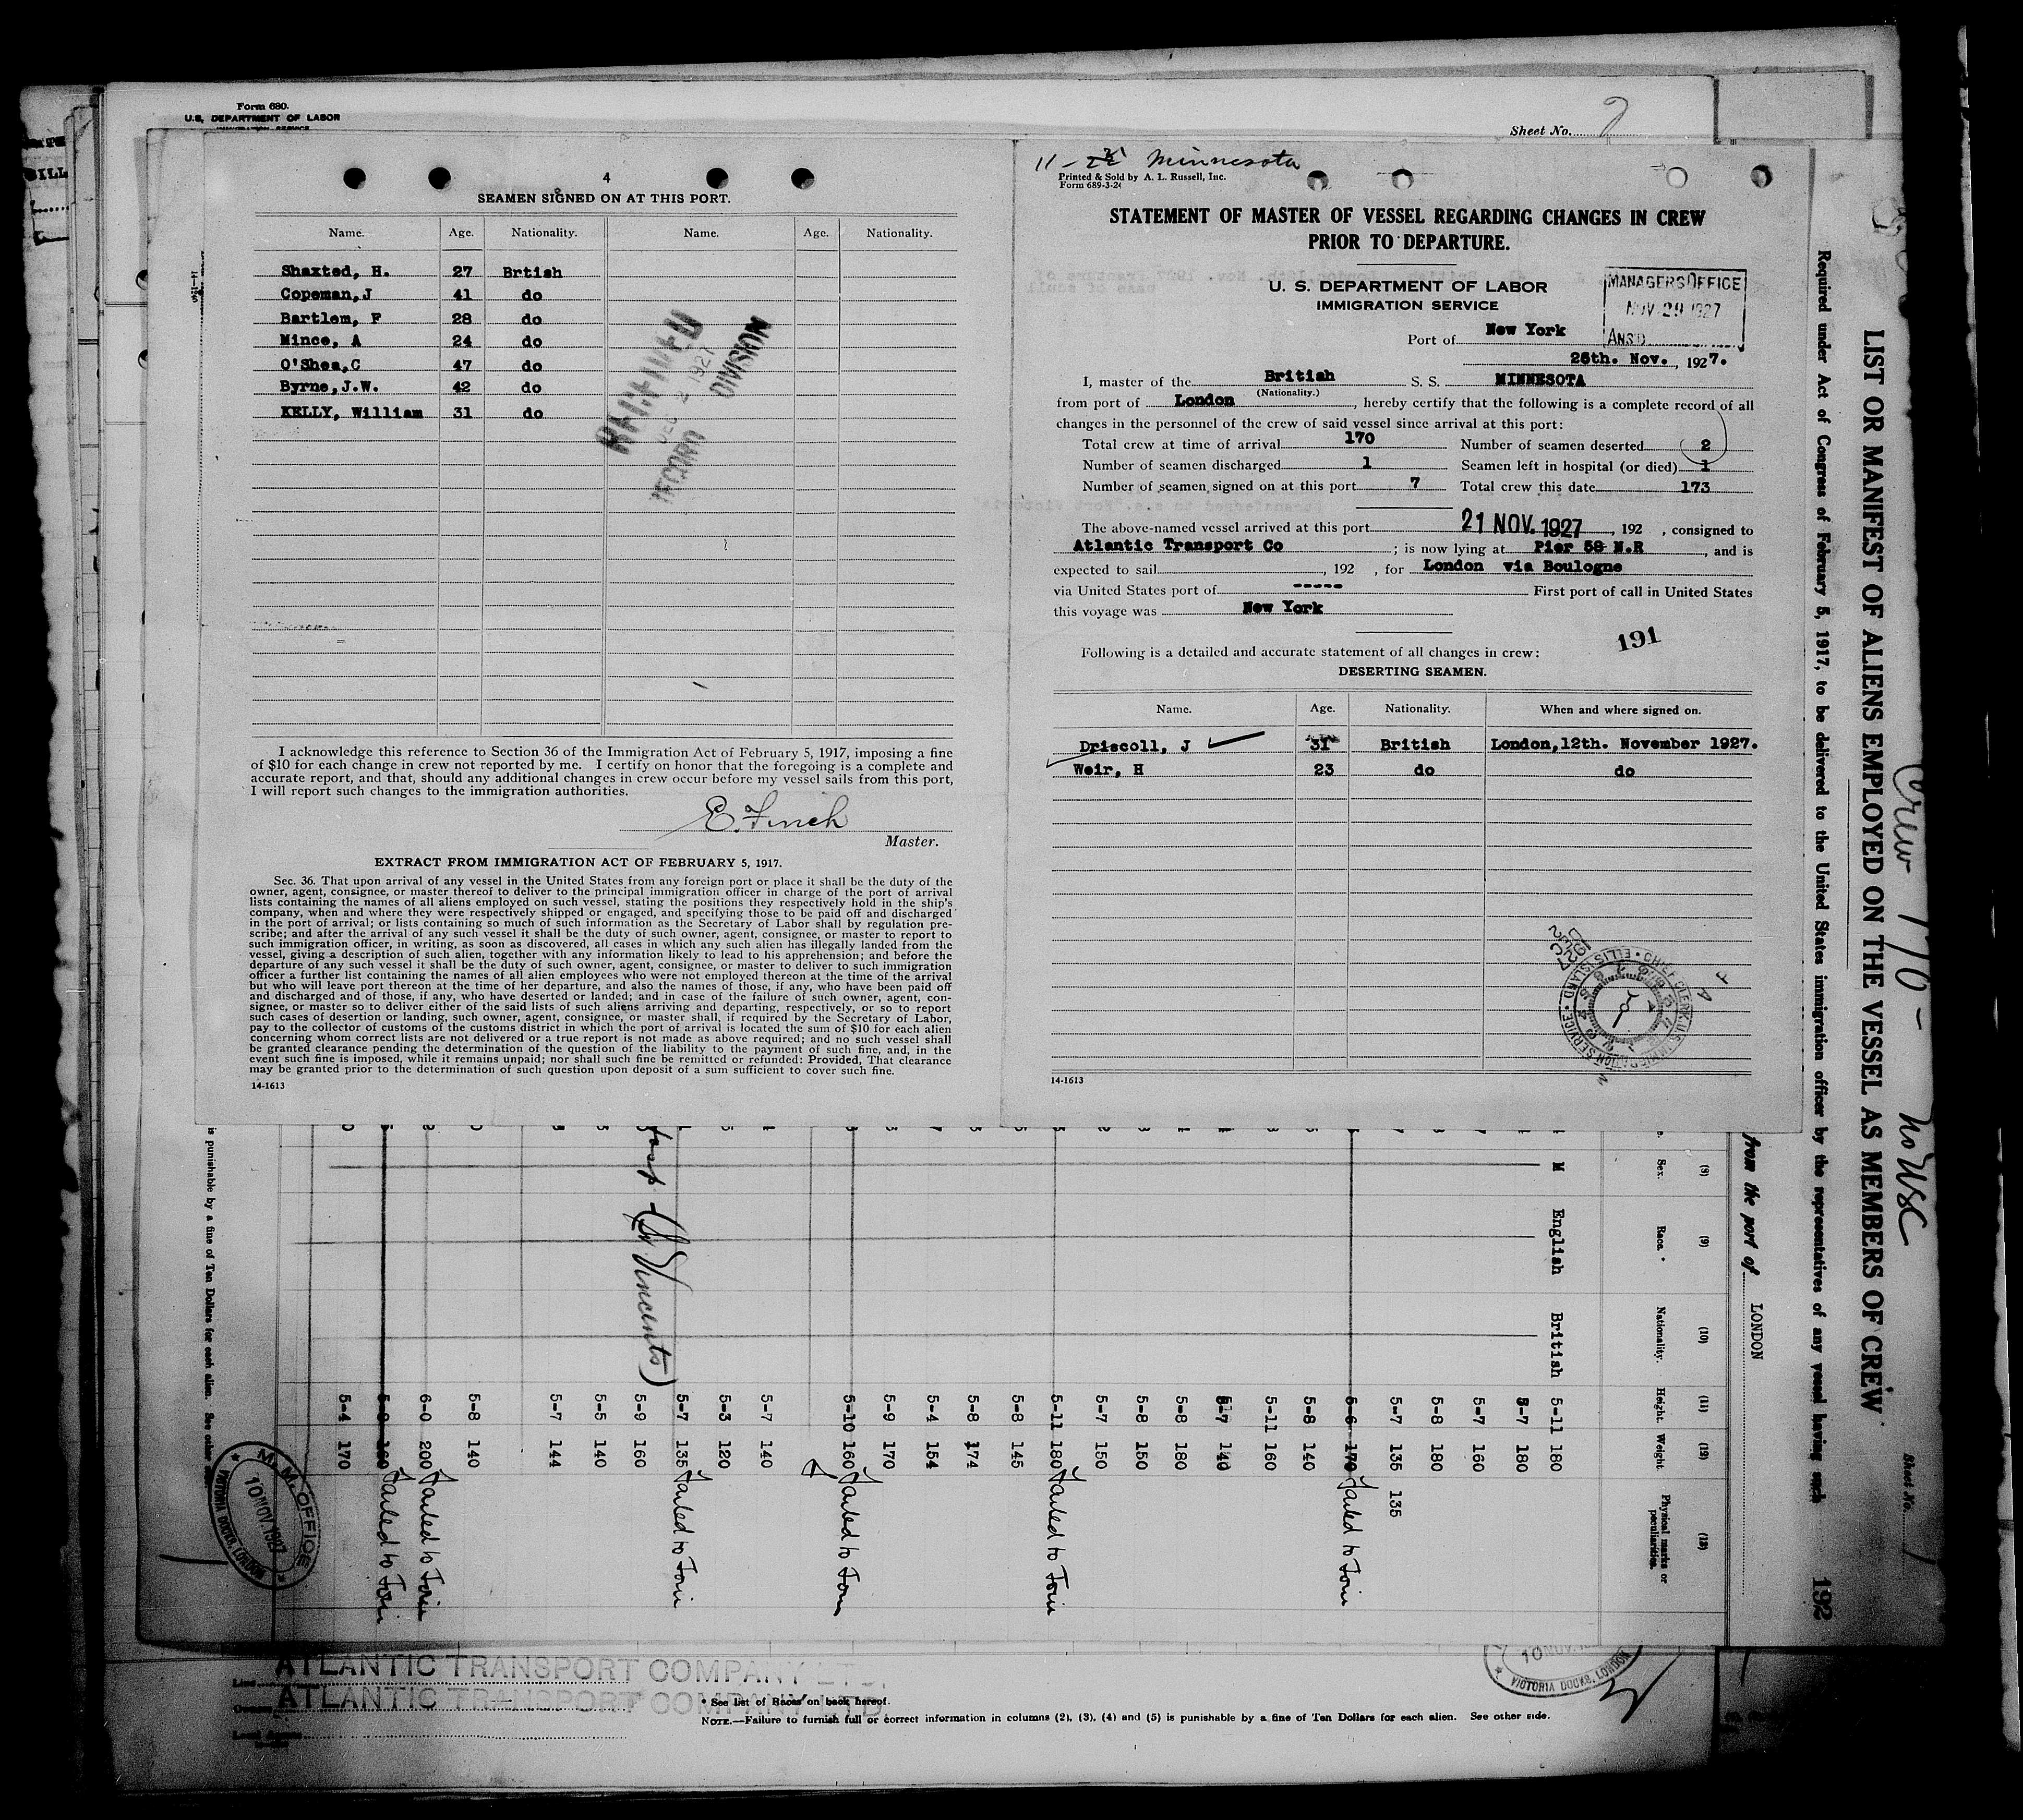 Form 680.
U.S. DEPARTMENT OF LABOR
IMMIGRATION SERVICE
Sheet No. 2
4
SEAMEN SIGNED ON AT THIS PORT.
Name. Age. Nationality. Name. Age. Nationality.
Shaxted, H. 27 Brtish
Copeman,J 41 do
Bartlem, F 28 do
Mince, A 24 do
O'Shea,C 47 do
Byrne,J.W. 42 do
KELLY, William 31 do
RECEIVED
DEC 2 1927
RECORD DIVISION
I acknowledge this reference to Section 36 of the Immigration Act of February 5, 1917, imposing a fine
of $10 for each change in crew not reported by me. I certify on honor that the foregoing is a complete and
accurate report, and that, should any additional changes in crew occur before my vessel sails from this port,
I will report such changes to the immigration authorities.
E. Finch
Master.
EXTRACT FROM IMMIGRATION ACT OF FEBRUARY 5, 1917.
Sec. 36. That upon arrival of any vessel in the United States from any foreign port or place it shall be the duty of the
owner, agent, consignee, or master thereof to deliver to the principal immigration officer in charge of the port of arrival
lists containing the names of all aliens employed on such vessel, stating the positions they respectively hold in the ship's
company, when and where they were respectively shipped or engaged, and specifying those to be paid off and discharged
in the port of arrival; or lists containing so much of such information as the Secretary of Labor shall by regulation pre-
scribe; and after the arrival of any such vessel it shall be the duty of such owner, agent, consignee, or master to report to
such immigration officer, in writing, as soon as discovered, all cases in which any such alien has illegally landed from the
vessel, giving a description of such alien, together with any information likely to lead to his apprehension; and before the
departure of any such vessel it shall be the duty of such owner, agent, consignee, or master to deliver to such immigration
officer a further list containing the names of all alien employees who were not employed thereon at the time of the arrival
but who will leave port thereon at the time of her departure, and also the names of those, if any, who have been paid off
and discharged and of those, if any, who have deserted or landed; and in case of the failure of such owner, agent, con-
signee, or master so to deliver either of the said lists of such aliens arriving and departing, respectively, or so to report
such cases of desertion or landing, such owner, agent, consignee, or master shall, if required by the Secretary of Labor,
pay to the collector of customs of the customs district in which the port of arrival is located the sum of $10 for each alien
concerning whom correct lists are not delivered or a true report is not made as above required; and no such vessel shall
be granted clearance pending the determination of the question of the liability to the payment of such fine, and, in the
event such fine is imposed, while it remains unpaid; nor shall such fine be remitted or refunded: Provided, That clearance
may be granted prior to the determination of such question upon deposit of a sum sufficient to cover such fine.
14-1613
Minnesota
Printed & Sold by A. L. Russell, Inc.
Form 689-3-26
STATEMENT OF MASTER OF VESSEL REGARDING CHANGES IN CREW
PRIOR TO DEPARTURE.
U. S. DEPARTMENT OF LABOR
IMMIGRATION SERVICE
MANAGERS OFFICE
NOV 29 1927
ANS'D
Port of New York
25th. Nov., 1927.
I, master of the British S. S. MINNESOTA
(Nationality.)
from port of London, hereby certify that the following is a complete record of all
changes in the personnel of the crew of said vessel since arrival at this port:
Total crew at time of arrival 170 Number of seamen deserted 2
Number of seamen discharged 1 Seamen left in hospital (or died) 1
Number of seamen signed on at this port 7 Total crew this date 173
The above-named vessel arrived at this port 21 NOV. 1927, 192 , consigned to
Atlantic Transport Co ; is now lying at Pier 58 N.R, and is
expected to sail, 192 , for London via Boulogne
via United States port of ----- First port of call in United States
this voyage was New York
191
Following is a detailed and accurate statement of all changes in crew:
DESERTING SEAMEN.
Name. Age. Nationality. When and where signed on.
Driscoll, J 31 British London,12th. November 1927.
Weir, H 23 do do
14-1613
CHIEF CLERK U.S. IMMIGRATION SERVICE • ELLIS ISLAND
1927 DEC 2
Crew 170 - no WSC
LIST OR MANIFEST OF ALIENS EMPLOYED ON THE VESSEL AS MEMBERS OF CREW
Sheet No. 1
Required under Act of Congress of February 5, 1917, to be delivered to the United States immigration officer by the representatives of any vessel having such
192
from the port of LONDON
(8) (9) (10) (11) (12) (13)
Sex. Race.* Nationality. Height. Weight. Physical marks or peculiarities.
M English British 5-11 180
5-7 180
5-7 160
5-8 180
5-7 135 135
5-6 170 Failed to Join
5-8 140
5-11 160
140
5-8 180
5-8 150
5-7 150
5-11 180 Failed to Join
5-8 145
5-8 174
5-4 154
5-9 170
5-10 160 Failed to Join
5-7 140
5-3 120
5-7 135 Failed to Join
5-9 160
(St Vincents)
5-5 140
5-7 144
5-8 140
6-0 200 Failed to Join
Failed to Join
5-4 170
is punishable by a fine of Ten Dollars for each alien. See other
M. M. OFFICE
10 NOV. 1927
VICTORIA DOCKS, LONDON
ATLANTIC TRANSPORT COMPANY LTD.
ATLANTIC TRANSPORT COMPANY LTD.
* See list of Races on back hereof.
NOTE.—Failure to furnish full or correct information in columns (2), (3), (4) and (5) is punishable by a fine of Ten Dollars for each alien. See other side.
10 NOV.
VICTORIA DOCKS, LONDON